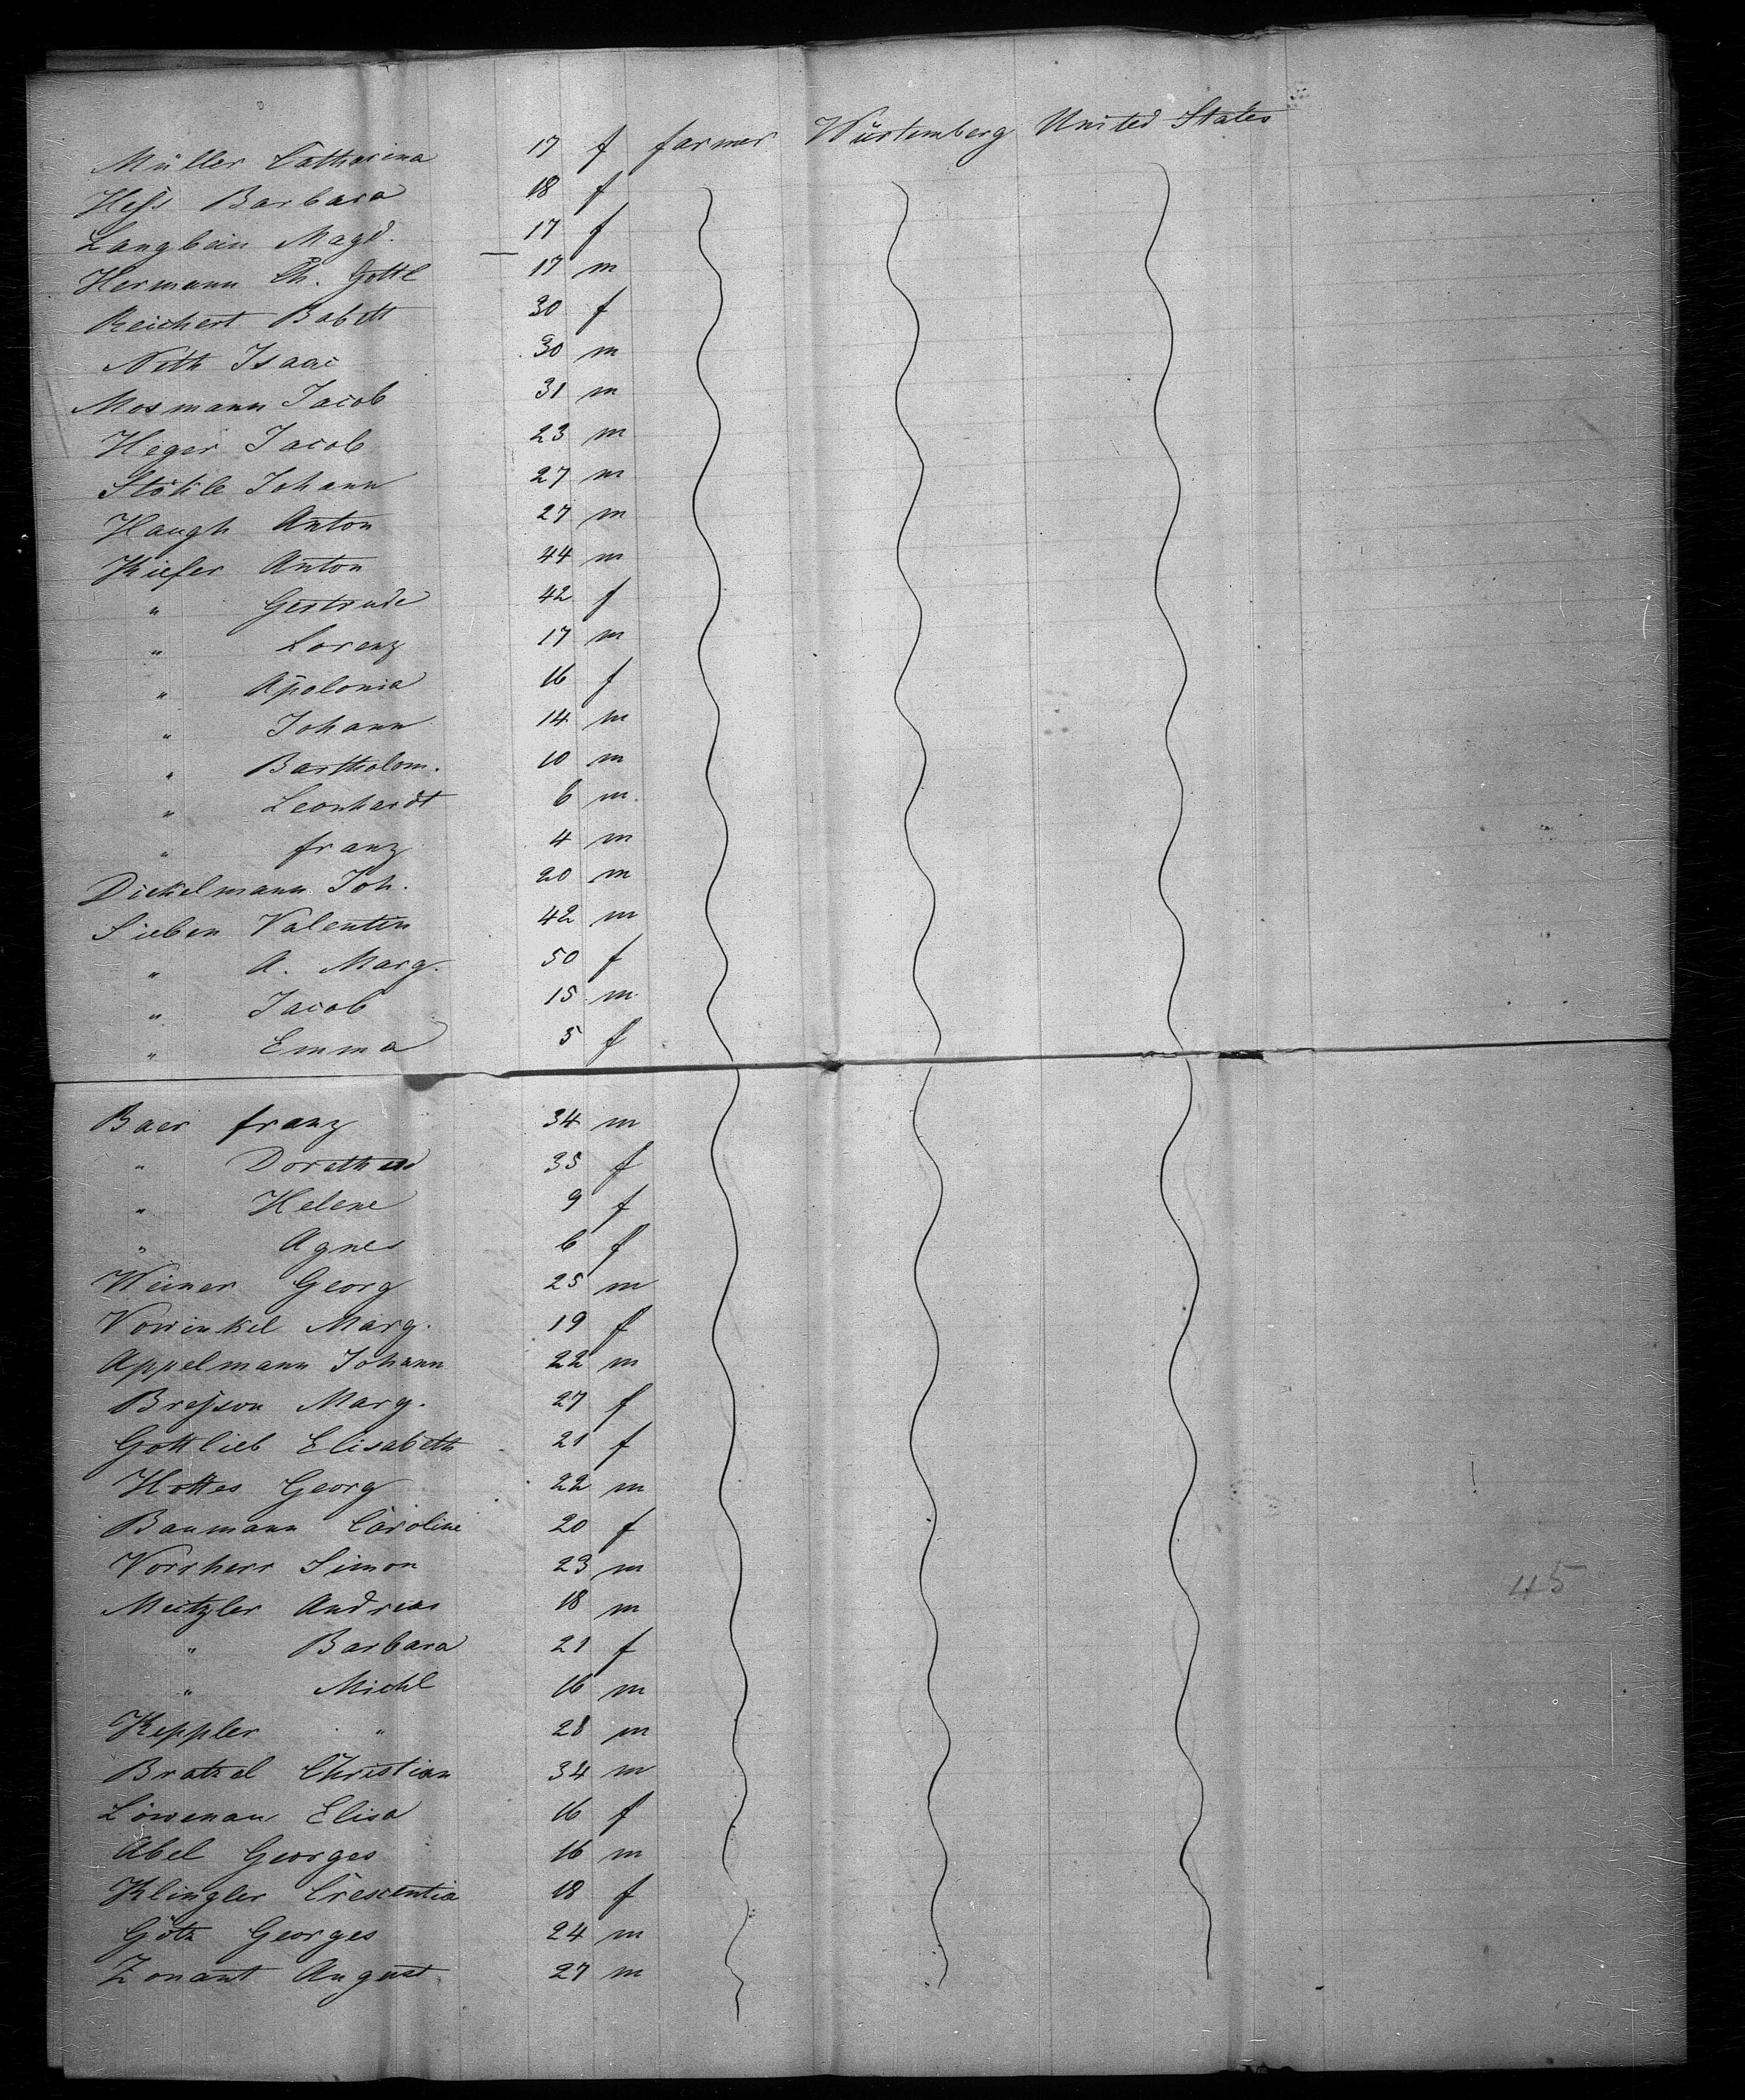 Müller Catharina 17 f farmer Würtemberg United States
Heſs Barbara 18 f
Langbein Magd. 17 f
Hermann Ch. Gottl 17 m
Reichert Babett 30 f
Neth Isaac 30 m
Mosmann Jacob 31 m
Heger Jacob 23 m
Johann 27 m
Haugh Anton 27 m
Kiefer Anton 44 m
" Gertrude 42 f
" Lorenz 17 m
" Apolonia 16 f
" Johann 14 m
" Bartholom. 10 m
" Leonhardt 6 m
" Franz 4 m
Dickelmann Joh. 20 m
Sieben Valentin 42 m
" A. Marg. 50 f
" Jacob 15 m
" Emma 5 f
Baer Franz 34 m
" Dorothea 35 f
" Helene 9 f
" Agnes 6 f
Weiner Georg 25 m
Vowinkel Marg. 19 f
Appelmann Johann 22 m
Breſson Marg. 27 f
Gottlieb Elisabeth 21 f
Hottes Georg 22 m
Baumann Caroline 20 f
Vorrherr Simon 23 m
Meitzler Andreas 18 m
" Barbara 21 f
" Michl 16 m
Keppler " 28 m
Bratzel Christian 34 m
Löwenau Elisa 16 f
Abel Georges 16 m
Klingler Crescentia 18 f
Götz Georges 24 m
Zonant August 27 m
45